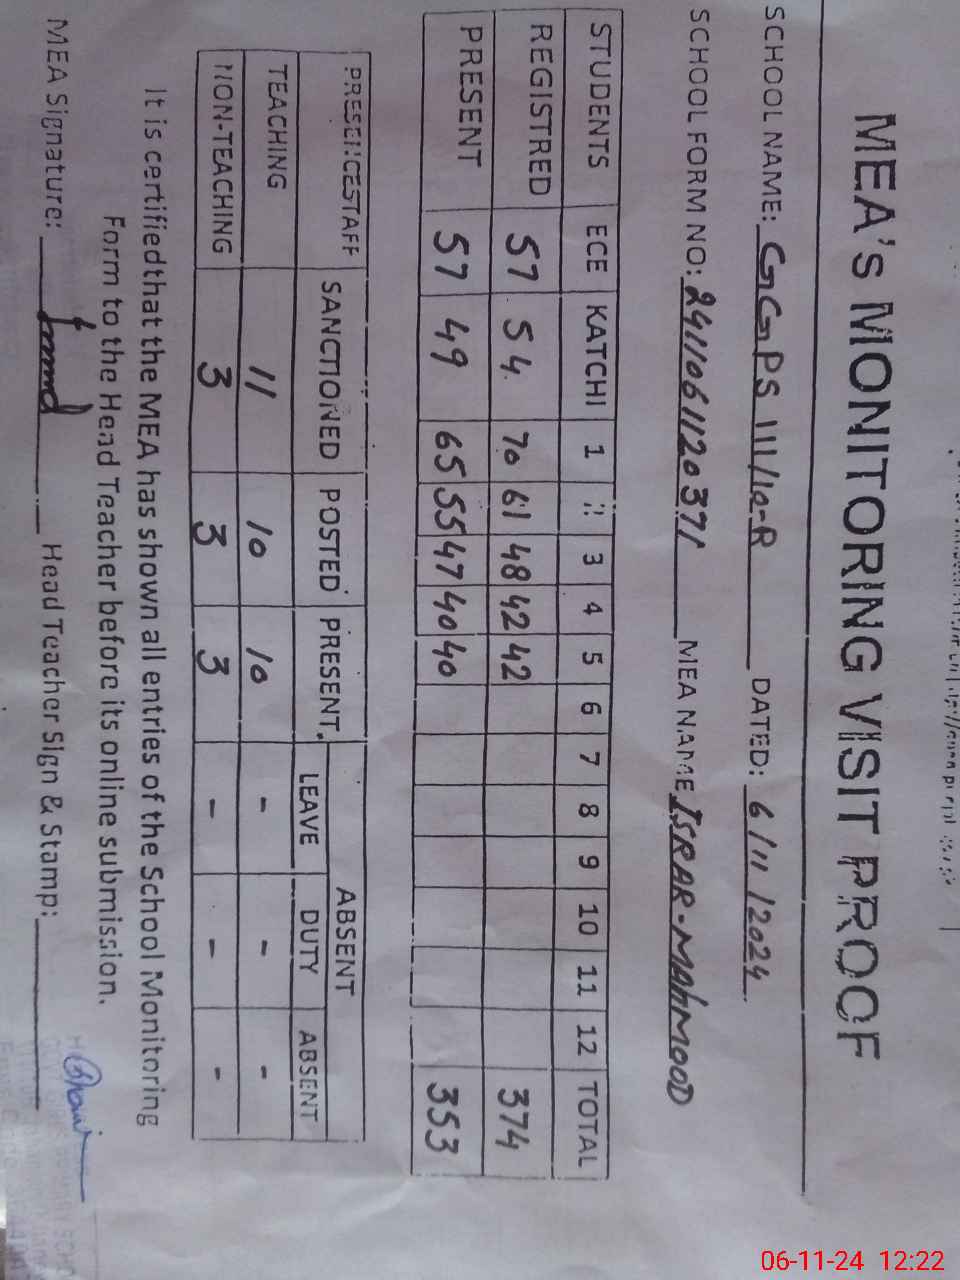 MEA's MONITORING VISIT PROOF
SCHOOL NAME: GGPS 111/10-R DATED: 6/11/2024
SCHOOL FORM NO: 2411061120371 MEA NAME ISRAR-MAhMOOD
STUDENTS ECE KATCHI 1 2 3 4 5 6 7 8 9 10 11 12 TOTAL
REGISTRED 57 54 70 61 48 42 42 374
PRESENT 57 49 65 55 47 40 40 353
PRESENCESTAFF SANCTIONED POSTED PRESENT ABSENT
LEAVE DUTY ABSENT
TEACHING 11 10 10 - - -
NON-TEACHING 3 3 3 - - -
It is certified that the MEA has shown all entries of the School Monitoring
Form to the Head Teacher before its online submission.
MEA Signature: Head Teacher Sign & Stamp:
06-11-24 12:22